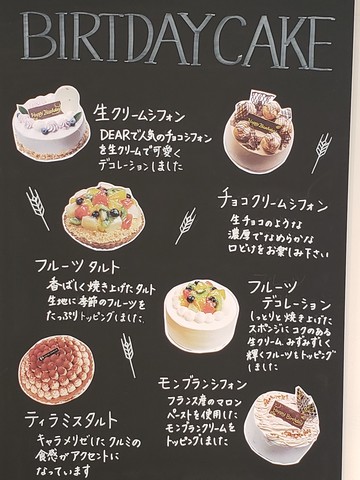 BIRTDAY CAKE
生クリームシフォン
DEARで人気のチョコシフォン
を生クリームで可愛く
デコレーションしました
チョコクリームシフォン
生チョコのような
濃厚でなめらかな
口どけをお楽しみ下さい
フルーツタルト
香ばしく焼き上げたタルト
生地に季節のフルーツを
たっぷりトッピングしました
フルーツ
デコレーション
しっとりと焼き上げた
スポンジにコクのある
生クリーム、みずみずしく
輝くフルーツをトッピング
しました
ティラミスタルト
キャラメリゼしたクルミの
食感がアクセントに
なっています
モンブランシフォン
フランス産のマロン
ペーストを使用した
モンブランクリームを
トッピングしました